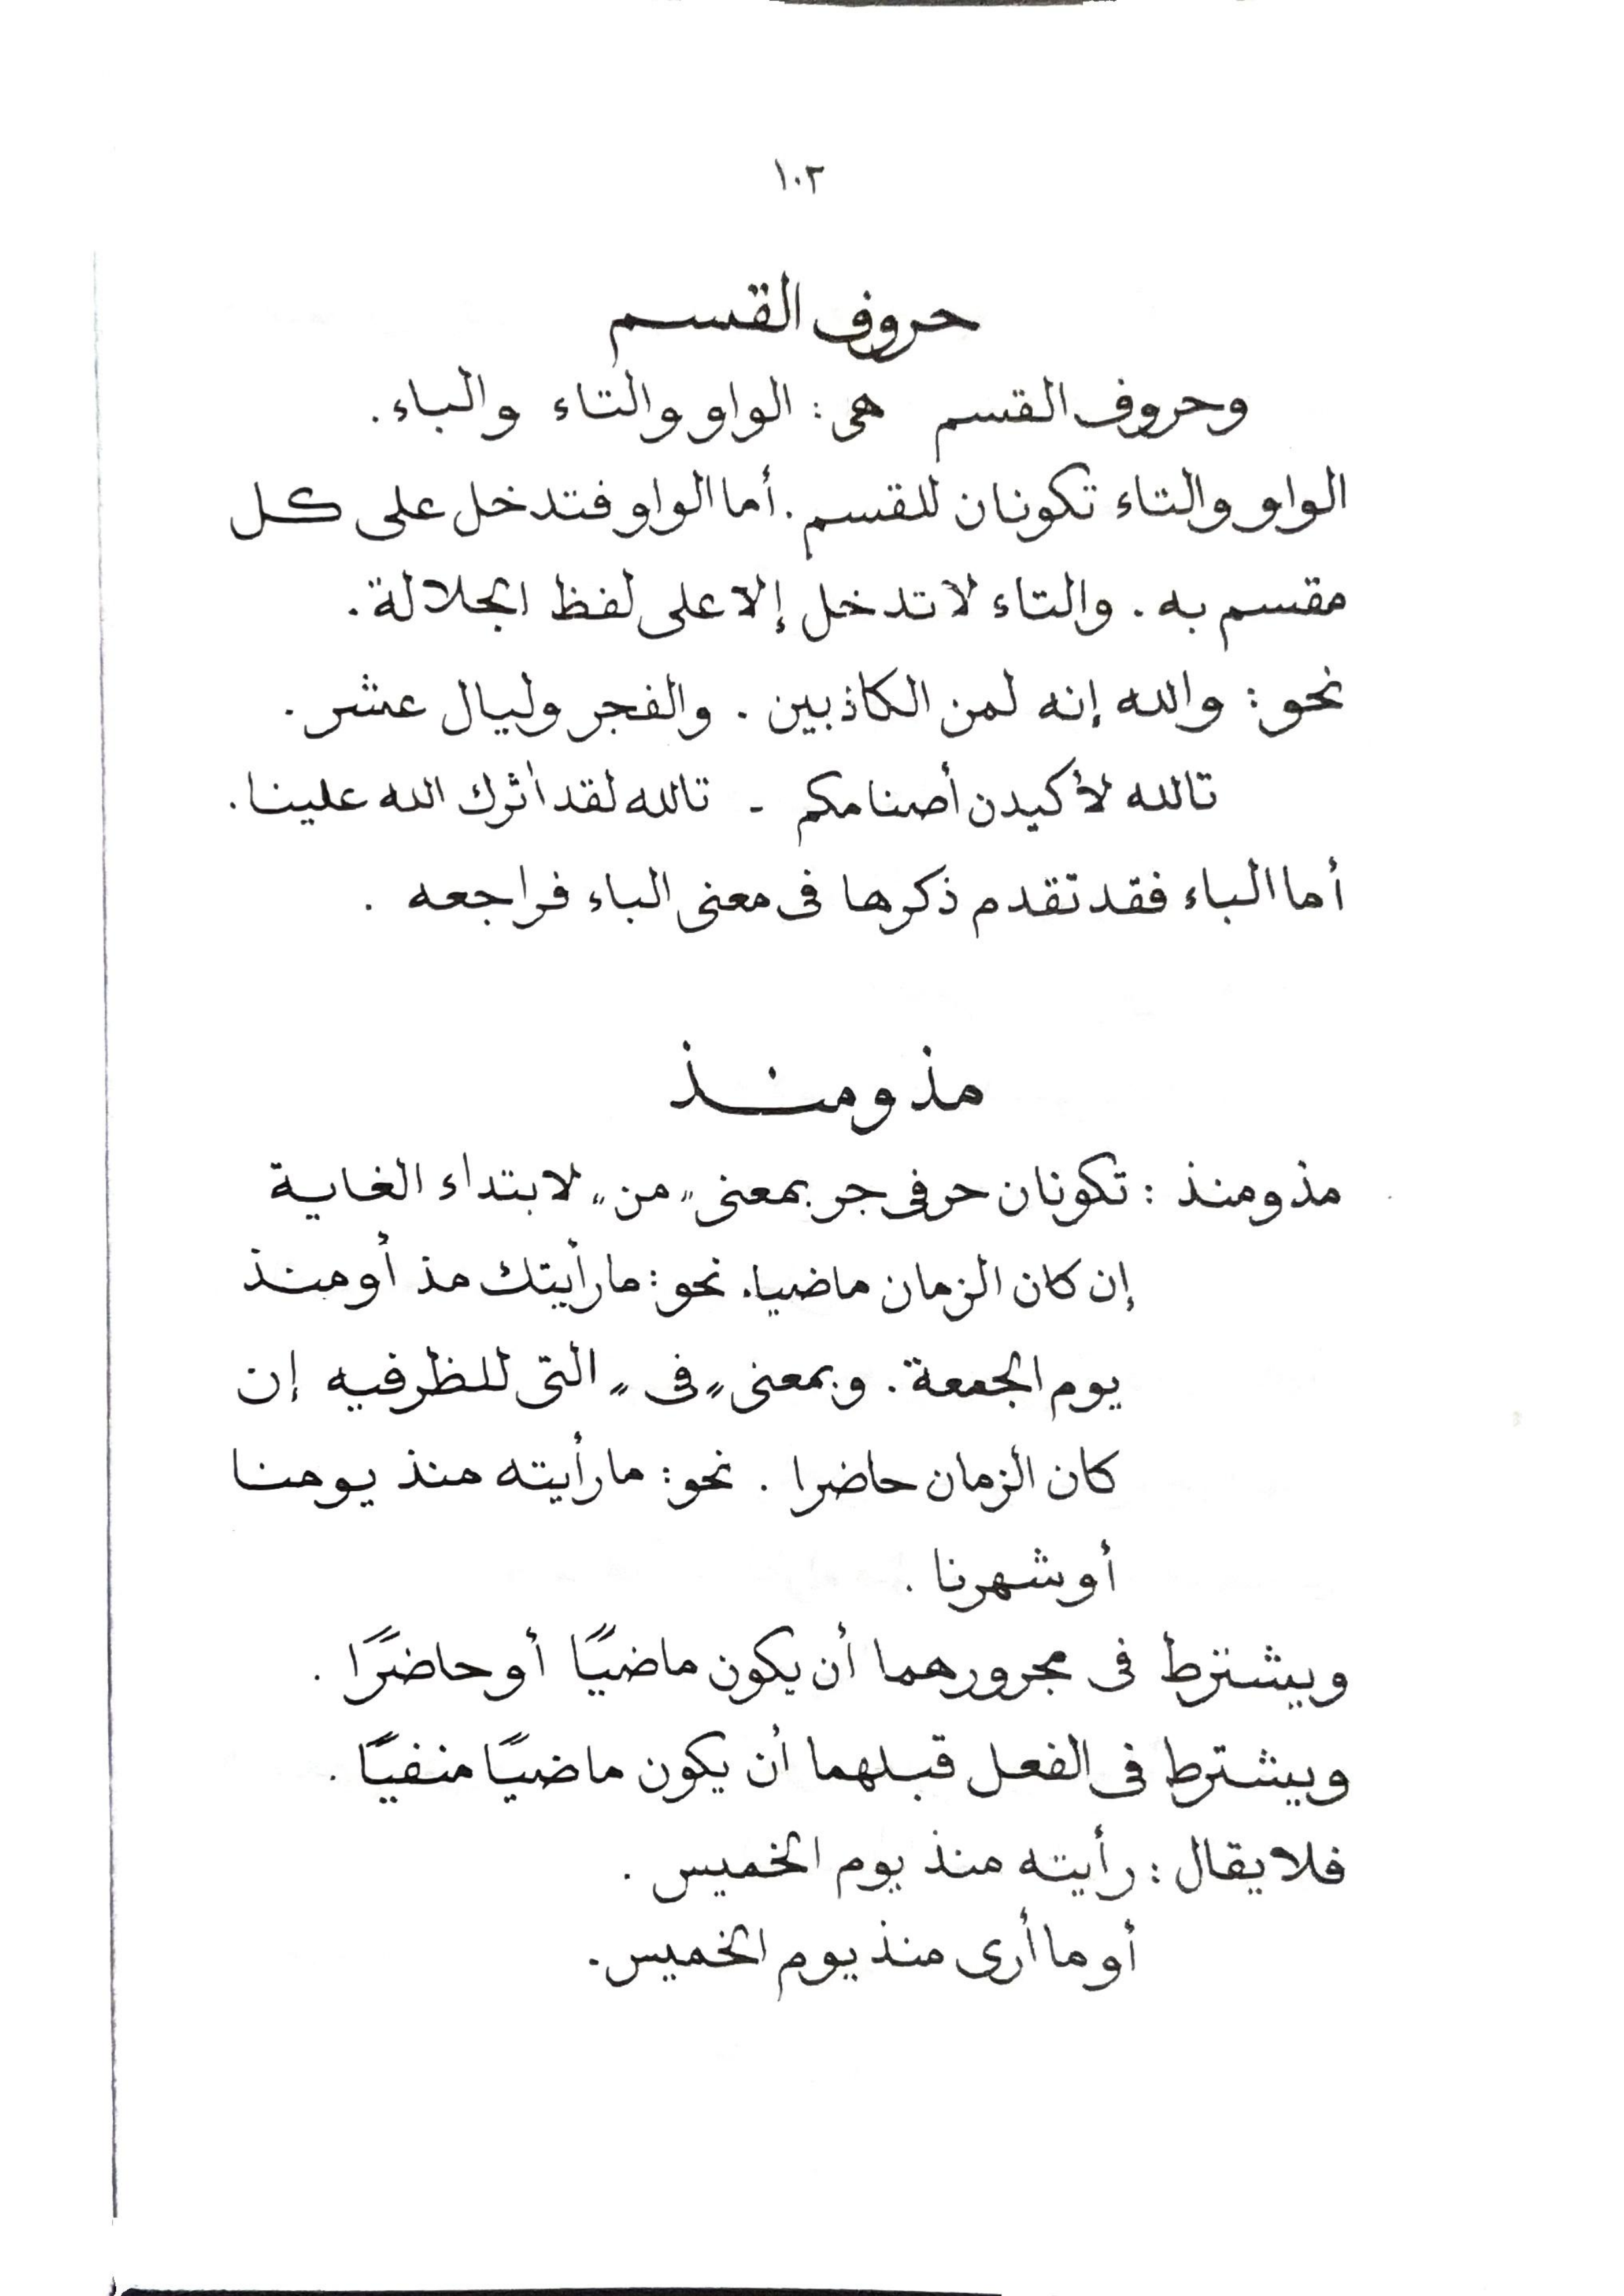 ١٠٢
حروف القسم
وحروف القسم هى : الواو والتاء والباء .
الواو والتاء تكونان للقسم . أما الواو فتدخل على كل
مقسم به . والتاء لا تدخل إلا على لفظ الجلالة .
نحو : والله إنه لمن الكاذبين . والفجر وليال عشر .
تالله لأكيدن أصنامكم - تالله لقد أثرك الله علينا .
أما الباء فقد تقدم ذكرها فى معنى الباء فراجعه .
مذ ومنذ
مذ ومنذ : تكونان حرفى جر بمعنى " من " لابتداء الغاية
إن كان الزمان ماضيا . نحو : ما رأيتك مذ أو منذ
يوم الجمعة . وبمعنى " فى " التى للظرفيه إن
كان الزمان حاضرا . نحو : ما رأيته منذ يومنا
أو شهرنا .
ويشترط فى مجرورهما أن يكون ماضيًا أو حاضرًا .
ويشترط فى الفعل قبلهما أن يكون ماضيًا منفيًا .
فلا يقال : رأيته منذ يوم الخميس .
أو ما أرى منذ يوم الخميس .